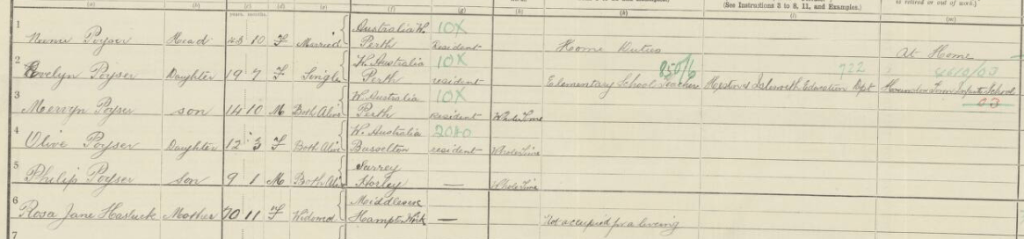 (See Instructions 8 to 8, 11, and Examples.)
is retired or out of work.)
(a) (f) (g) (h) (l) (m)
years months
1 Poyser Head 43 10 F Married Australia W. Perth 10X Resident Home Duties At Home —
2 Evelyn Poyser Daughter 19 7 F Single W. Australia Perth 10X resident Elementary School Teacher 850/6 Heston & Isleworth Education Dept 722 Hounslow Town Infants School 02
3 Mervyn Poyser son 14 10 M Both Alive W. Australia Perth 10X resident Whole Time
4 Olive Poyser Daughter 12 3 F Both Alive W. Australia Busselton 2080 resident Whole Time
5 Philip Poyser son 9 1 M Both Alive Surrey Horley — Whole Time
6 Rosa Jane Hasluck Mother 70 11 F Widowed Middlesex Hampton Wick — Not occupied for a living
7